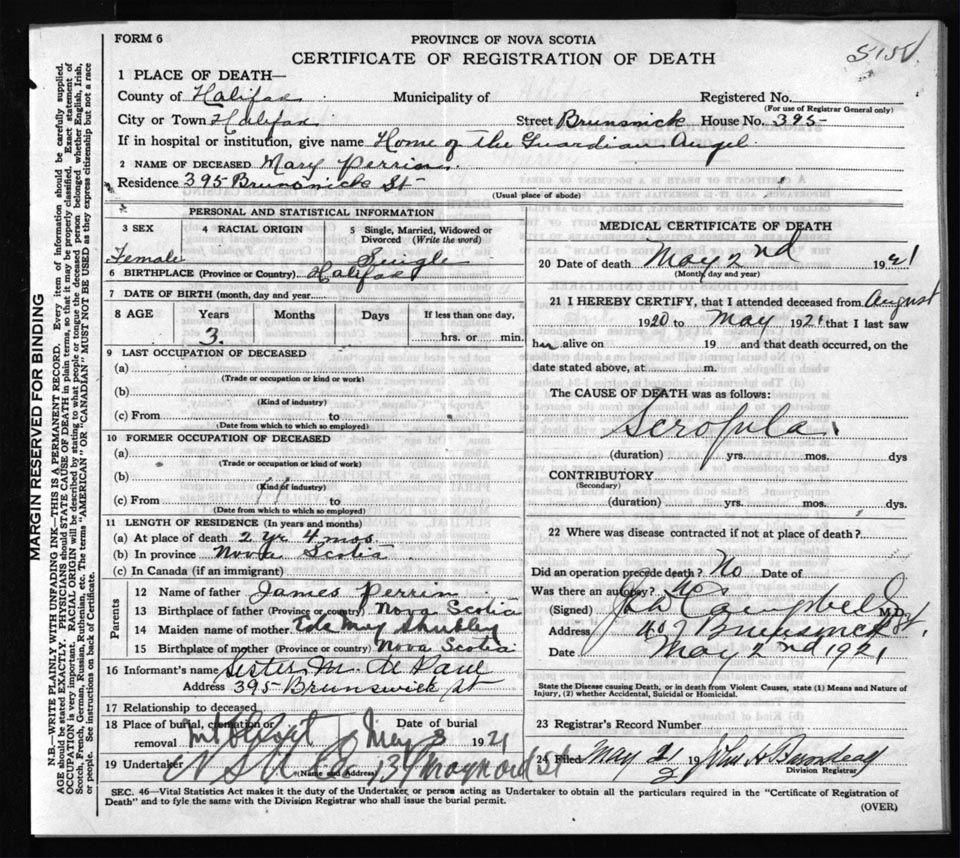 FORM 6
PROVINCE OF NOVA SCOTIA
CERTIFICATE OF REGISTRATION OF DEATH
5150
1 PLACE OF DEATH—
County of Halifax Municipality of Registered No.
(For use of Registrar General only)
City or Town Halifax Street Brunsnick House No. 395-
If in hospital or institution, give name Home of the Guardian Angel
2 NAME OF DECEASED Mary Perrin.
Residence 395 Brunsnick St-
(Usual place of abode)
PERSONAL AND STATISTICAL INFORMATION
3 SEX 4 RACIAL ORIGIN 5 Single, Married, Widowed or Divorced (Write the word)
Female Single
6 BIRTHPLACE (Province or Country) Halifax
7 DATE OF BIRTH (month, day and year
8 AGE Years Months Days If less than one day,
3. hrs. or min.
9 LAST OCCUPATION OF DECEASED
(a)
(Trade or occupation or kind or work)
(b)
(Kind of industry)
(c) From to
(Date from which to which so employed)
10 FORMER OCCUPATION OF DECEASED
(a)
(Trade or occupation or kind of work)
(b)
(Kind of industry)
(c) From to
(Date from which to which so employed)
11 LENGTH OF RESIDENCE (In years and months)
(a) At place of death 2 yr 4 mos.
(b) In province Nova Scotia
(c) In Canada (if an immigrant)
Parents
12 Name of father James Perrin
13 Birthplace of father (Province or country) Nova Scotia
14 Maiden name of mother. Eda May
15 Birthplace of mother (Province or country) Nova Scotia
16 Informant's name Sister M. de Paul
Address 395 Brunswick st
17 Relationship to deceased
18 Place of burial, cremation or removal Mt Olivet Date of burial May 3 1921
19 Undertaker N S U Co 137 Maynard St
(Name and Address)
MEDICAL CERTIFICATE OF DEATH
20 Date of death May 2nd 1921
(Month, day and year)
21 I HEREBY CERTIFY, that I attended deceased from August
1920 to May 1921 that I last saw
her alive on 19 and that death occurred, on the
date stated above, at m.
The CAUSE OF DEATH was as follows:
Scrofula
(duration) yrs. mos. dys
CONTRIBUTORY
(Secondary)
(duration) yrs. mos. dys.
22 Where was disease contracted if not at place of death?
Did an operation precede death? No Date of
Was there an autopsy? No
(Signed) Campbell M.D.
Address 407 Brunswick St.
Date May 2nd 1921
State the Disease causing Death, or in death from Violent Causes, state (1) Means and Nature of
Injury, (2) whether Accidental, Suicidal or Homicidal.
23 Registrar's Record Number
24 Filed May 2 1921
Division Registrar
SEC. 46—Vital Statistics Act makes it the duty of the Undertaker or person acting as Undertaker to obtain all the particulars required in the "Certificate of Registration of
Death" and to fyle the same with the Division Registrar who shall issue the burial permit.
(OVER)
MARGIN RESERVED FOR BINDING
N.B.—WRITE PLAINLY WITH UNFADING INK—THIS IS A PERMANENT RECORD. Every item of information should be carefully supplied.
AGE should be stated EXACTLY. PHYSICIANS should STATE CAUSE OF DEATH in plain terms, so that it may be properly classified. Exact statement of
OCCUPATION is very important. RACIAL ORIGIN will be described by stating to what people or tongue the deceased person belonged whether English, Irish,
Scotch, French, German, Russian, Ruthenian, etc. The terms "AMERICAN" OR "CANADIAN" MUST NOT BE USED as they express citizenship but not a race
or people. See instructions on back of Certificate.